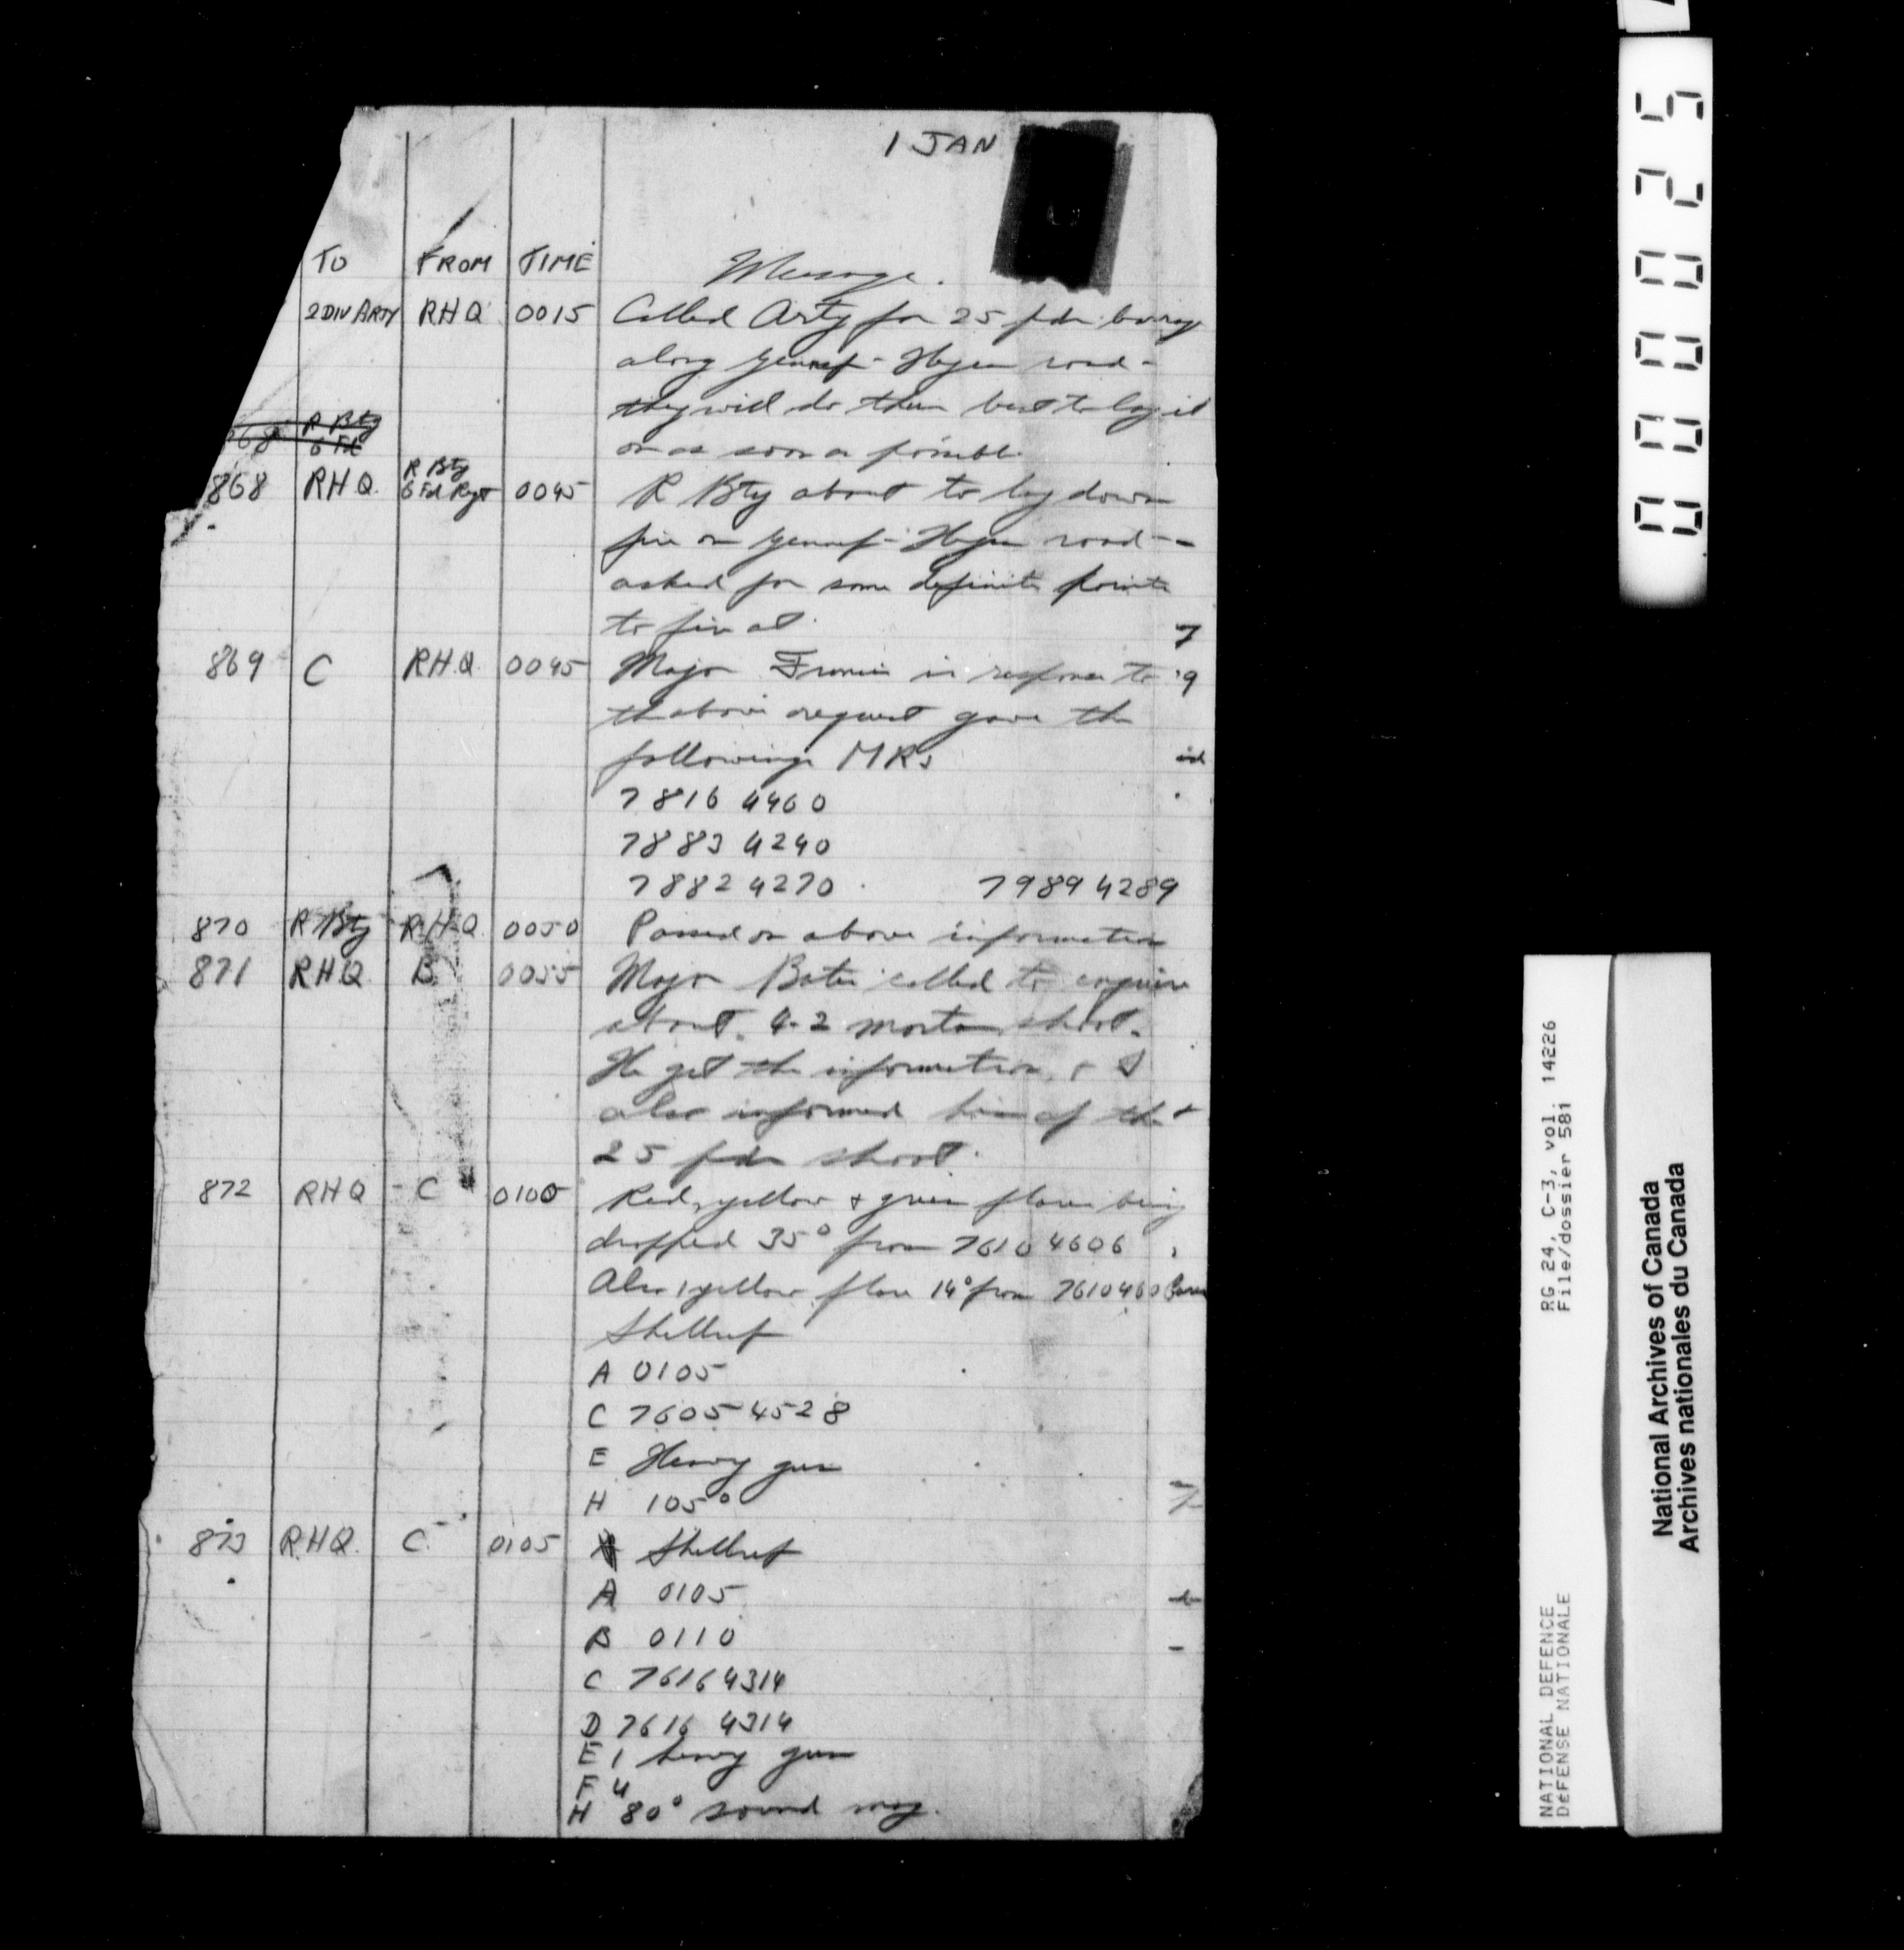 1 JAN
TO FROM TIME Message.
2 DIV ARTY RHQ 0015 Called Arty for 25 pdr barrage
along Gennep - Heijen road -
they will do their best to lay it
868 R Bty
6 Fd
on as soon as possible.
868 RHQ. R Bty 6 Fd Regt 0045 R Bty about to lay down
fire on Gennep - Heijen road -
asked for some definite points
to fire at.
869 C RHQ. 0045 Major in response to
the above request gave the
following MRs
7816 4460
7883 4240
7882 4270 7989 4289
870 R Bty RHQ. 0050 Passed on above information
871 RHQ. B 0055 Major Bates called to enquire
about 4.2 mortar shoot.
He got the information, & I
also informed him of the
25 pdr shoot.
872 RHQ C 0100 Red, yellow & green flares being
dropped 35° from 7610 4606
Also 1 yellow flare 14° from 7610460
Shellrep
A 0105
C 7605 4528
E Heavy gun
H 105°
873 RHQ. C. 0105 Shellrep
A 0105
B 0110
C 7616 4314
D 7616 4314
E 1 heavy gun
F 4
H 80° sound
000025
RG 24, C-3, vol. 14226
File/dossier 581
NATIONAL DEFENCE
DEFENSE NATIONALE
National Archives of Canada
Archives nationales du Canada